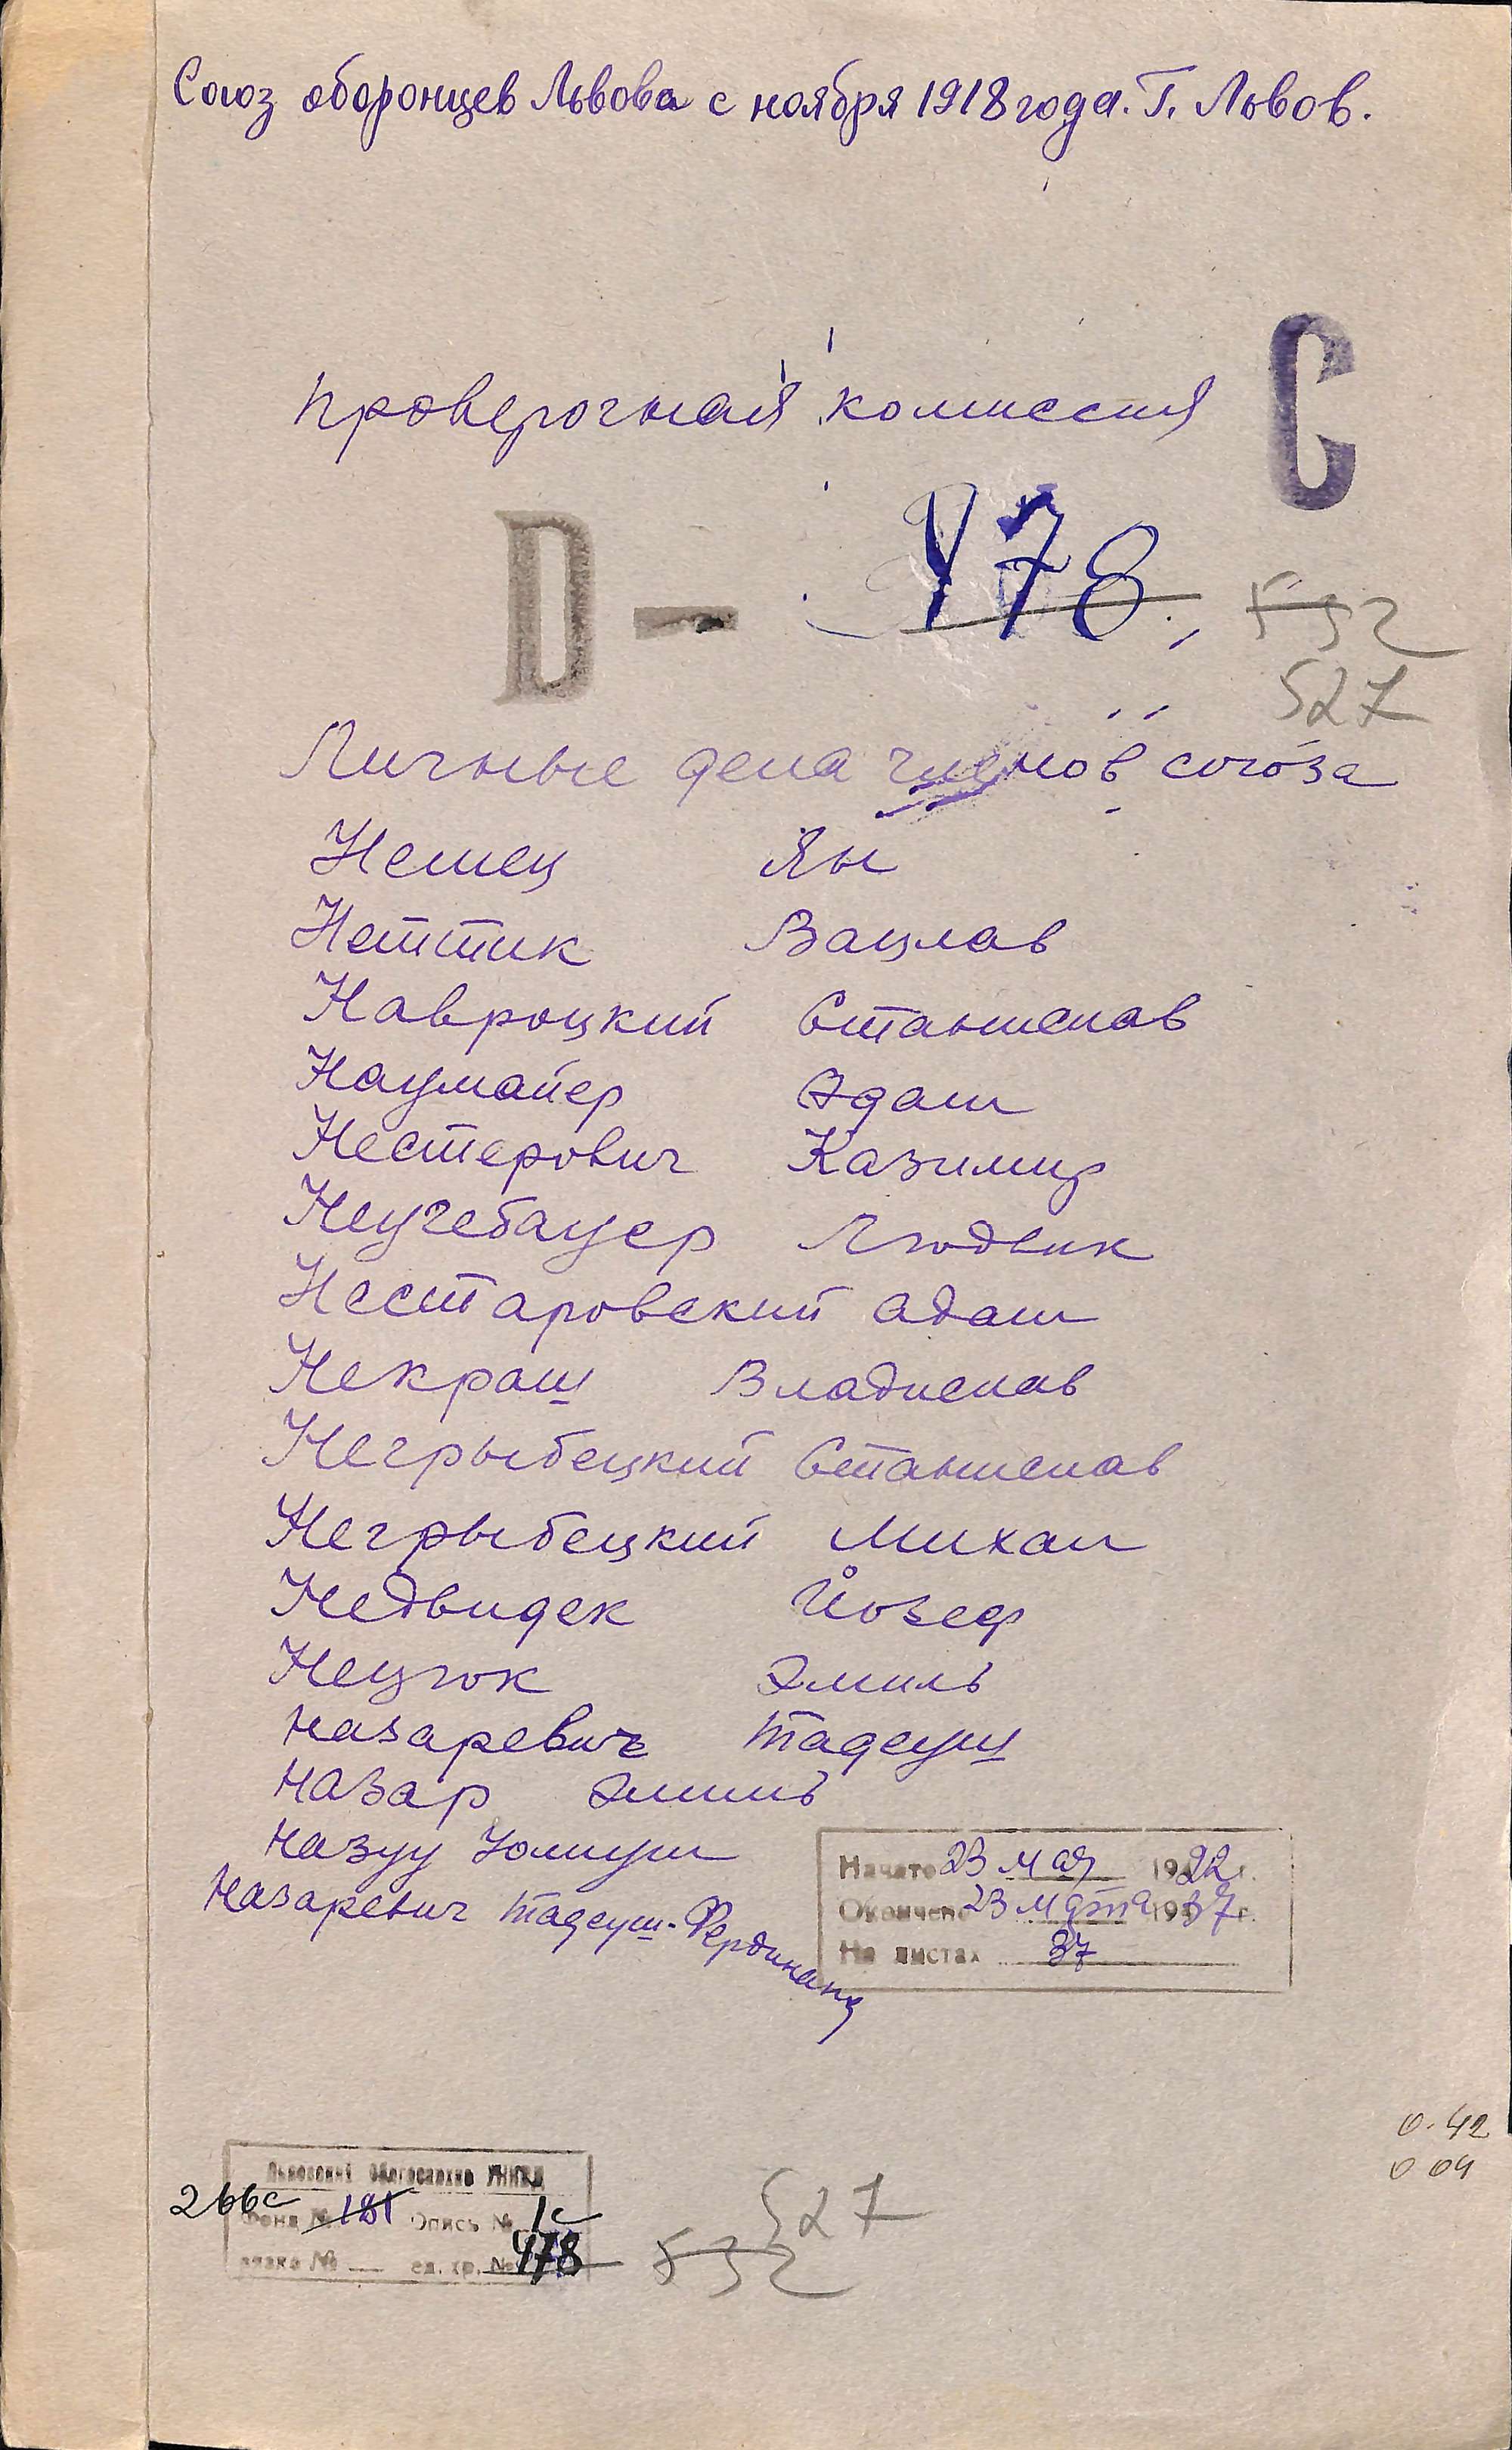 Союз оборонцев Львова с ноября 1918 года. Г. Львов.
Проверочная комиссия
С
D — 478
532
527
Личные дела членов союза
Немец Ян
Неттик Вацлав
Навроцкий Станислав
Наумайер Адам
Нестерович Казимир
Неугебауер Людвик
Нестаровский Адам
Некраш Владислав
Негрыбецкий Станислав
Негрыбецкий Михал
Недвидек Йозеф
Нецюк Эмиль
Назаревич Тадеуш
Назар Эмиль
Назуу Юлиуш
Назаревич Тадеуш-Фердинанд
Начато 23 мая 1922 г.
Окончено 23 марта 1937 г.
На листах 37
0.42
0 04
Львовский Облгосархив УНКВД
266с Фонд № 181 Опись № 1с
вязка № ед. хр. № 478
527
532